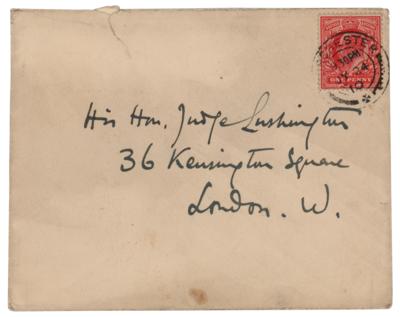 ESTER
24
10
ONE PENNY
His Hon. Judge Lushington
36 Kensington Square
London. W.